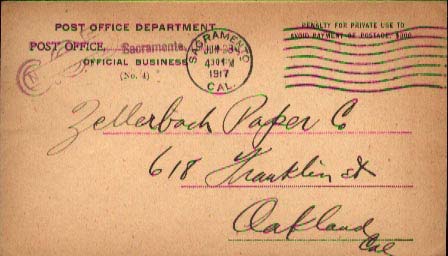 POST OFFICE DEPARTMENT
POST OFFICE, Sacramento,
OFFICIAL BUSINESS
(No. 4)
SACRAMENTO
JUN 23
430 PM
1917
CAL.
PENALTY FOR PRIVATE USE TO
AVOID PAYMENT OF POSTAGE, $300
Zellerbach Paper Co
618 Franklin st
Oakland
Cal